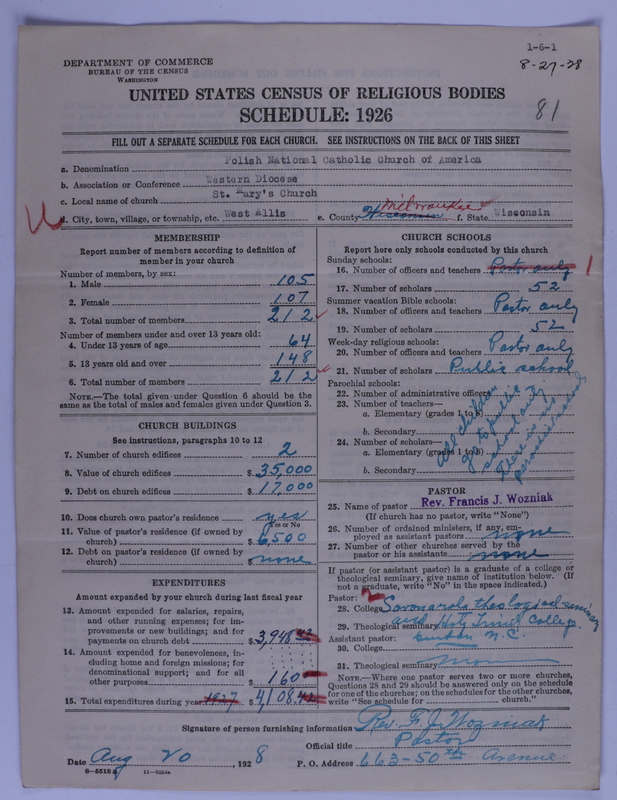 1-6-1
8-27-28
81
DEPARTMENT OF COMMERCE
BUREAU OF THE CENSUS
WASHINGTON
UNITED STATES CENSUS OF RELIGIOUS BODIES
SCHEDULE: 1926
FILL OUT A SEPARATE SCHEDULE FOR EACH CHURCH. SEE INSTRUCTIONS ON THE BACK OF THIS SHEET
a. Denomination Polish National Catholic Church of America
b. Association or Conference Western Diocese
c. Local name of church St. Mary's Church
d. City, town, village, or township, etc. West Allis e. County Wisconsin Milwaukee f. State Wisconsin
MEMBERSHIP
Report number of members according to definition of
member in your church
Number of members, by sex:
1. Male 105
2. Female 107
3. Total number of members 212
Number of members under and over 13 years old:
4. Under 13 years of age 64
5. 13 years old and over 148
6. Total number of members 212
NOTE.—The total given under Question 6 should be the
same as the total of males and females given under Question 3.
CHURCH BUILDINGS
See instructions, paragraphs 10 to 12
7. Number of church edifices 2
8. Value of church edifices $35,000
9. Debt on church edifices $17,000
10. Does church own pastor's residence yes
Yes or No
11. Value of pastor's residence (if owned by
church) $6,500
12. Debt on pastor's residence (if owned by
church) $none
EXPENDITURES
Amount expended by your church during last fiscal year
13. Amount expended for salaries, repairs,
and other running expenses; for im-
provements or new buildings; and for
payments on church debt $3,948.42
14. Amount expended for benevolences, in-
cluding home and foreign missions; for
denominational support; and for all
other purposes $160
15. Total expenditures during year 1927 $4108.42
CHURCH SCHOOLS
Report here only schools conducted by this church
Sunday schools:
16. Number of officers and teachers Pastor only 1
17. Number of scholars 52
Summer vacation Bible schools:
18. Number of officers and teachers Pastor only
19. Number of scholars 52
Week-day religious schools:
20. Number of officers and teachers Pastor only
21. Number of scholars Public school
Parochial schools:
22. Number of administrative officers
23. Number of teachers—
a. Elementary (grades 1 to 8)
b. Secondary
24. Number of scholars—
a. Elementary (grades 1 to 8)
b. Secondary
All children
go to public
school only.
There is no
parochial school
PASTOR
25. Name of pastor Rev. Francis J. Wozniak
(If church has no pastor, write "None")
26. Number of ordained ministers, if any, em-
ployed as assistant pastors none
27. Number of other churches served by the
pastor or his assistants none
If pastor (or assistant pastor) is a graduate of a college or
theological seminary, give name of institution below. (If
not a graduate, write "No" in the space indicated.)
Pastor:
28. College Savonarola theological seminary
29. Theological seminary and College.
Assistant pastor: N.C.
30. College
31. Theological seminary
NOTE.—Where one pastor serves two or more churches,
Questions 28 and 29 should be answered only on the schedule
for one of the churches; on the schedules for the other churches,
write "See schedule for church."
Signature of person furnishing information Rev. F. J. Wozniak
Official title Pastor
Date Aug 20, 1928 P. O. Address 663-50th Avenue.
8-5518a 11-